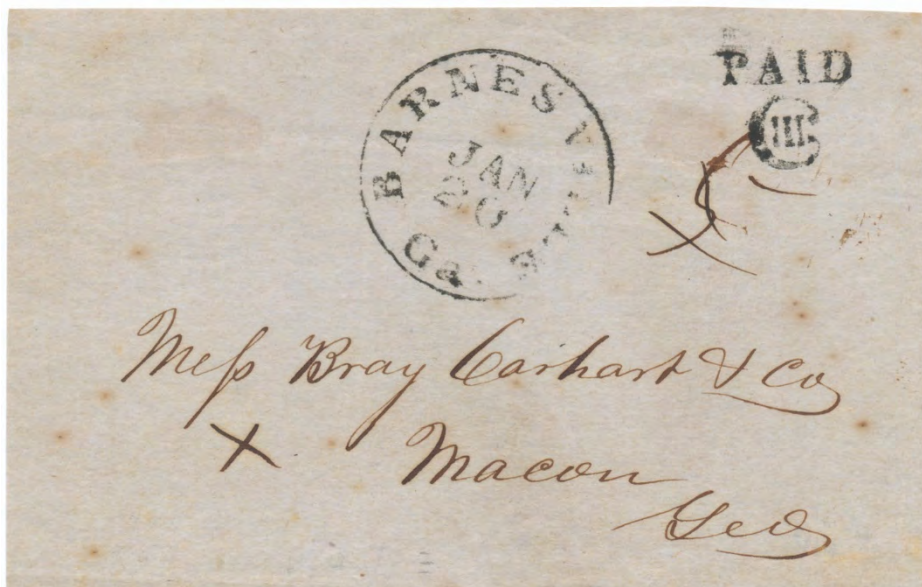 BARNESVILLE
Ga.
JAN
20
PAID
III
Mess Bray Carhart & Co
x Macon
Geo